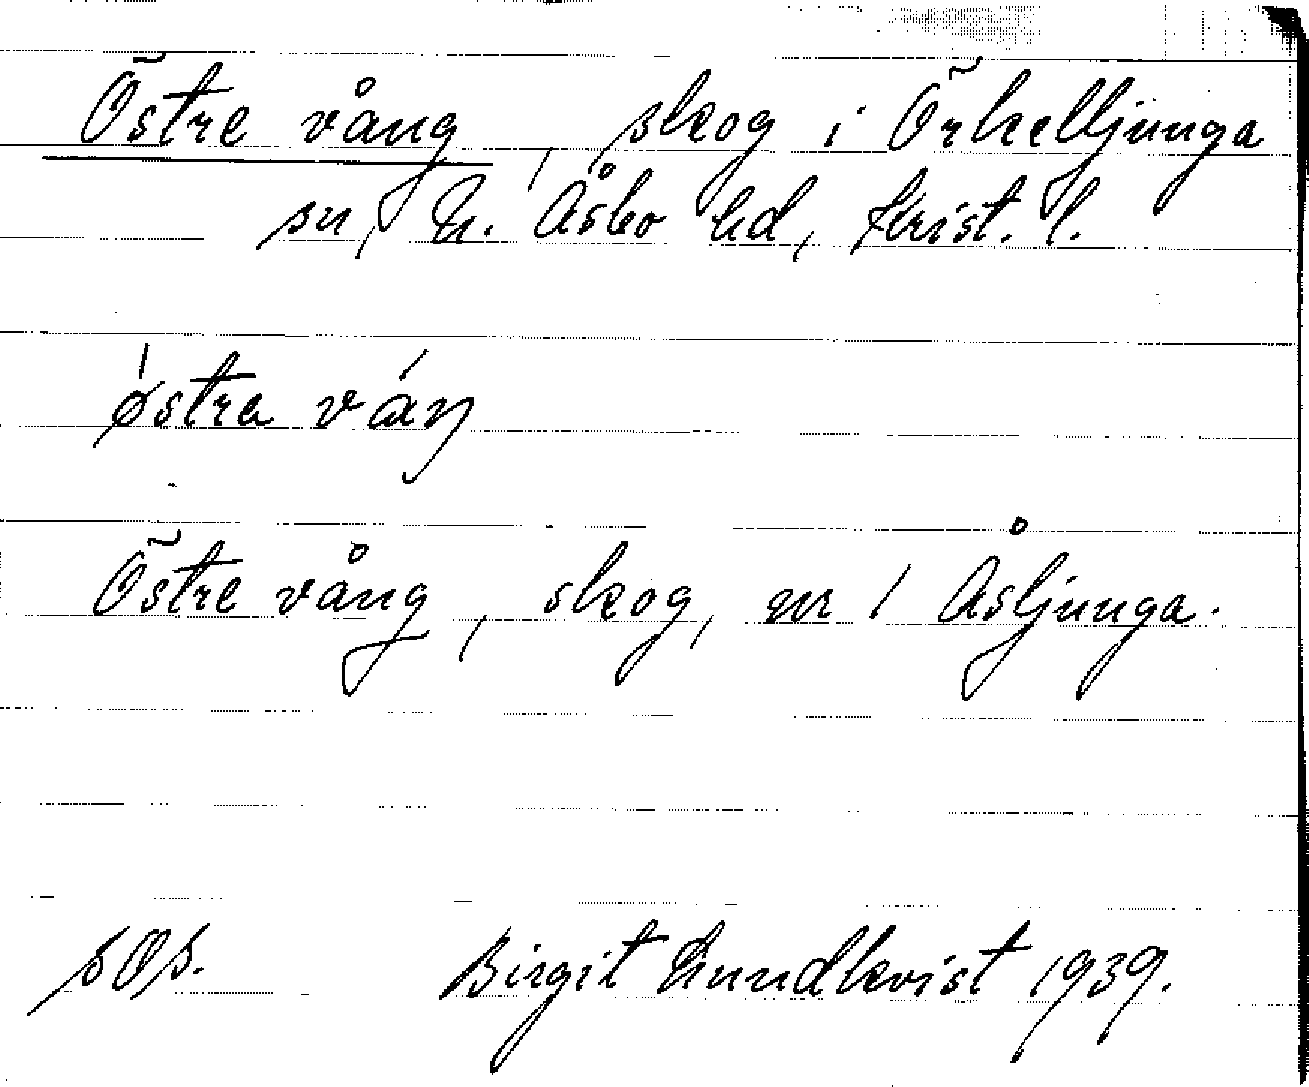 Östre vång, skog i Örkelljunga
sn, N. Åsbo hd, Krist. l.
østra váŋ
Östre vång, skog, nr 1 Åsljunga.
SOS. Birgit Lundkvist 1939.